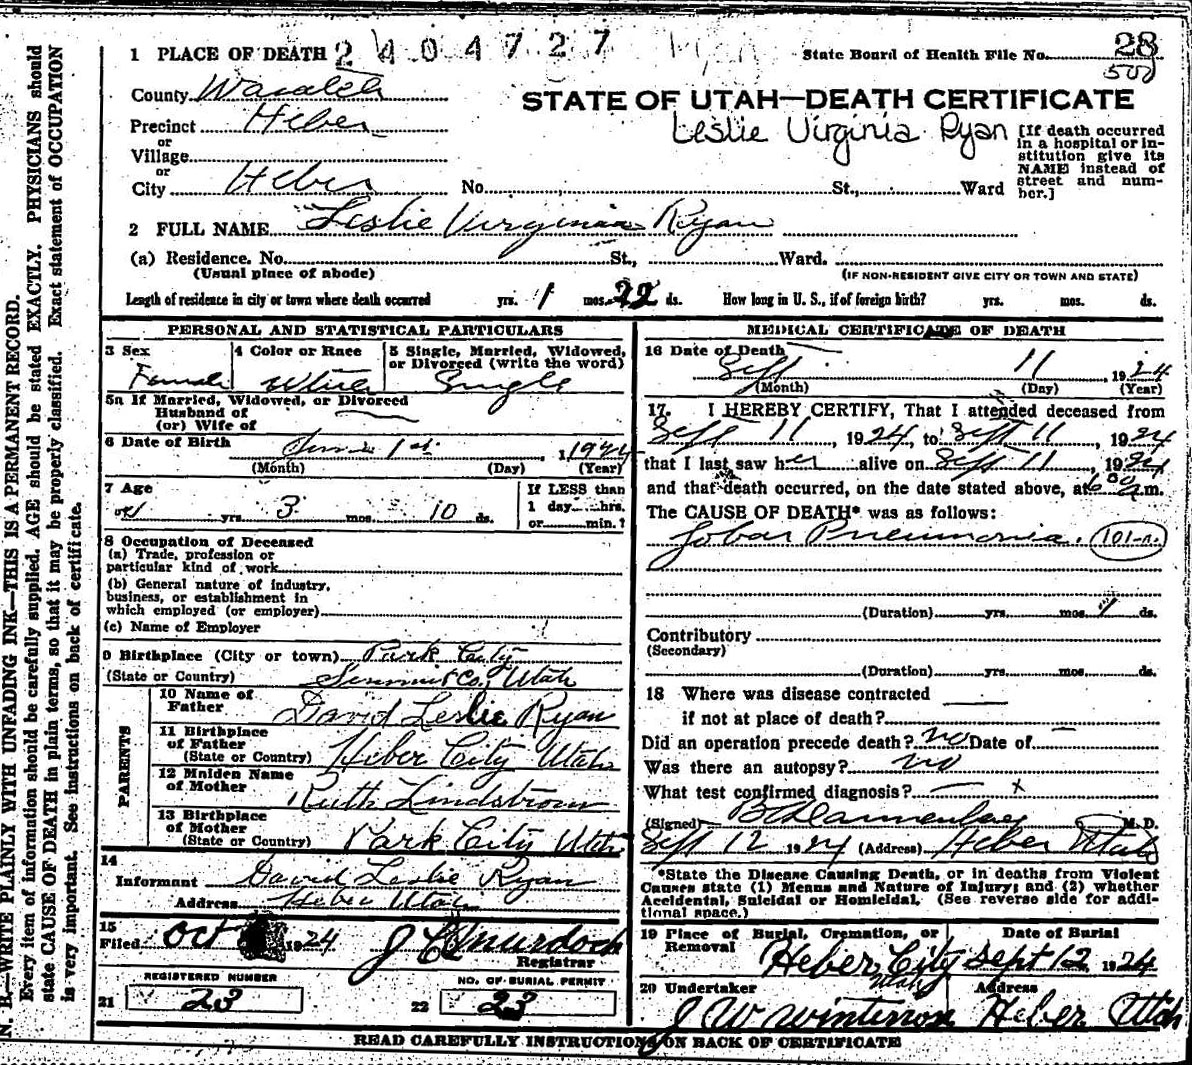 1 PLACE OF DEATH 2404727 State Board of Health File No. 28
500
County Wasatch
STATE OF UTAH—DEATH CERTIFICATE
Precinct Heber
Leslie Virginia Ryan
[If death occurred in a hospital or institution give its NAME instead of street and number.]
or
Village
or
City Heber No. St., Ward
2 FULL NAME Leslie Virginia Ryan
(a) Residence. No. St., Ward.
(Usual place of abode) (IF NON-RESIDENT GIVE CITY OR TOWN AND STATE)
Length of residence in city or town where death occurred yrs. 1 mos. 22 ds. How long in U. S., if of foreign birth? yrs. mos. ds.
PERSONAL AND STATISTICAL PARTICULARS
3 Sex 4 Color or Race 5 Single, Married, Widowed,
or Divorced (write the word)
Female White Single
5a If Married, Widowed, or Divorced
Husband of
(or) Wife of
6 Date of Birth June 1st, 1924
(Month) (Day) (Year)
7 Age If LESS than
yrs. 3 mos. 10 ds. 1 day hrs.
or min.?
8 Occupation of Deceased
(a) Trade, profession or
particular kind of work
(b) General nature of industry,
business, or establishment in
which employed (or employer)
(c) Name of Employer
9 Birthplace (City or town) Park City
(State or Country) Summit Co., Utah
PARENTS
10 Name of
Father David Leslie Ryan
11 Birthplace
of Father
(State or Country) Heber City Utah
12 Maiden Name
of Mother Ruth Lindstrom
13 Birthplace
of Mother
(State or Country) Park City Utah
14
Informant David Leslie Ryan
Address Heber Utah
15
Filed Oct 1924 J C Murdoch
Registrar
REGISTERED NUMBER NO. OF BURIAL PERMIT
21 23 22 23
MEDICAL CERTIFICATE OF DEATH
16 Date of Death
Sept 11, 1924
(Month) (Day) (Year)
17. I HEREBY CERTIFY, That I attended deceased from
Sept 11, 1924, to Sept 11, 1924
that I last saw her alive on Sept 11, 1924
and that death occurred, on the date stated above, at a.m.
The CAUSE OF DEATH* was as follows:
Lobar Pneumonia. 101-a.
(Duration) yrs. mos. 1 ds.
Contributory
(Secondary)
(Duration) yrs. mos. ds.
18 Where was disease contracted
if not at place of death?
Did an operation precede death? no Date of
Was there an autopsy? no
What test confirmed diagnosis? x
(Signed) M.D.
Sept 12 1924 (Address) Heber Utah
*State the Disease Causing Death, or in deaths from Violent
Causes state (1) Means and Nature of Injury; and (2) whether
Accidental, Suicidal or Homicidal. (See reverse side for addi-
tional space.)
19 Place of Burial, Cremation, or Date of Burial
Removal Heber City Utah Sept 12 1924
20 Undertaker Address
J W Winterrose Heber Utah
READ CAREFULLY INSTRUCTIONS ON BACK OF CERTIFICATE
N. B.—WRITE PLAINLY WITH UNFADING INK—THIS IS A PERMANENT RECORD.
Every item of information should be carefully supplied. AGE should be stated EXACTLY. PHYSICIANS should
state CAUSE OF DEATH in plain terms, so that it may be properly classified. Exact statement of OCCUPATION
is very important. See instructions on back of certificate.